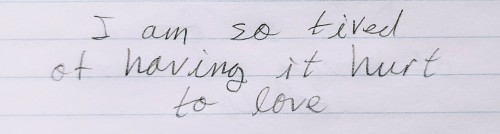 I am so tired
of having it hurt
to love